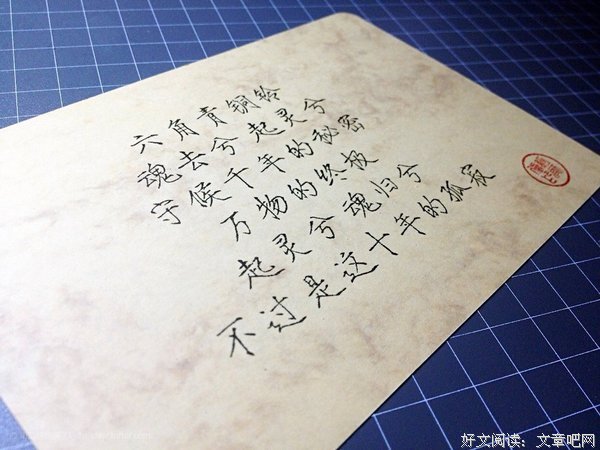 六角青铜铃
魂去兮 起灵兮
守候千年的秘密
万物的终极
起灵兮 魂归兮
不过是这十年的孤寂
好文阅读：文章吧网